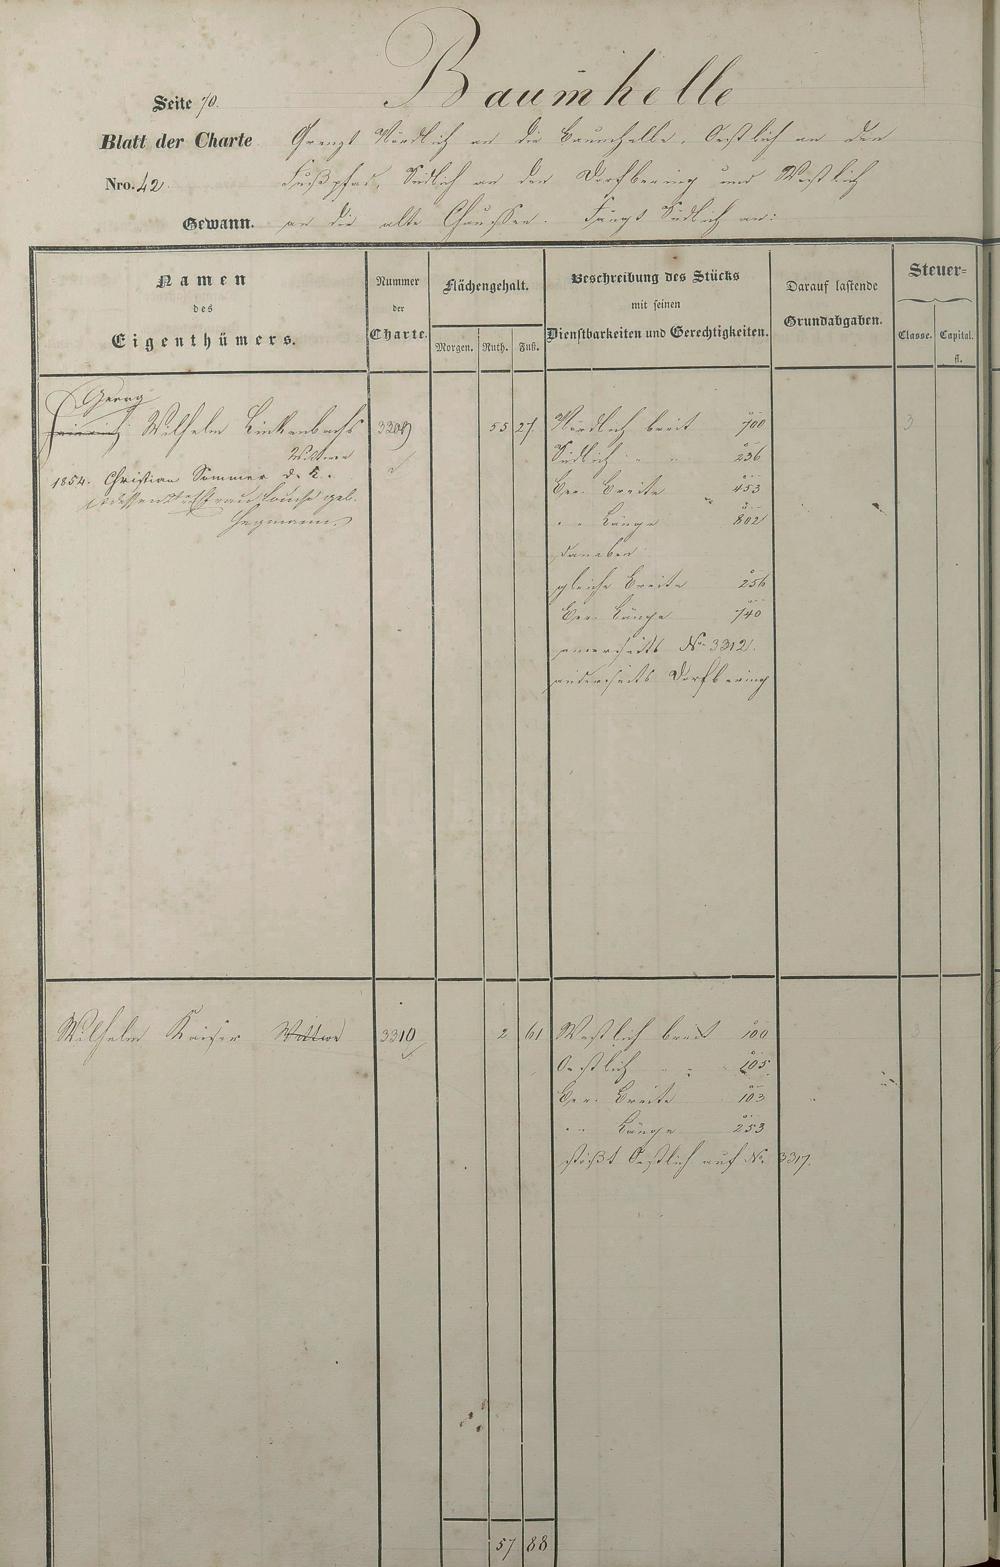 Baumhelle
Seite 70.
Blatt der Charte
Nro. 42.
Gewann.
Grenzt Nördlich an die Baumhelle, Oestlich an den
Fußpfad, Südlich an den Dorfbering und Westlich
an die alte Chaussee. Fängt Südlich an:
Namen
des
Eigenthümers.
Nummer
der
Charte.
Flächengehalt.
Morgen. Ruth. Fuß.
Beschreibung des Stücks
mit seinen
Dienstbarkeiten und Gerechtigkeiten.
Darauf lastende
Grundabgaben.
Steuer-
Classe. Capital.
fl.
Georg
Heinrich Wilhelm Linkenbachs 3309 55 27 Nördlich breit 700 3
Wittwe
1854. Christian Sommer d. K.
dessen Ehefrau Louise geb.
Hegmann
Südlich " " 236
Ger. Breite 453
" " Länge 802
daneben
gleiche Breite 256
Ger. Länge 740
einerseits No 3312.
anderseits Dorfbering
Wilhelm Kaiser Wittwe 3310 2 61 Westlich breit 100
Oestlich " " 105
Ger. Breite 103
" " Länge 253
stößt Oestlich auf No 3317.
57 88